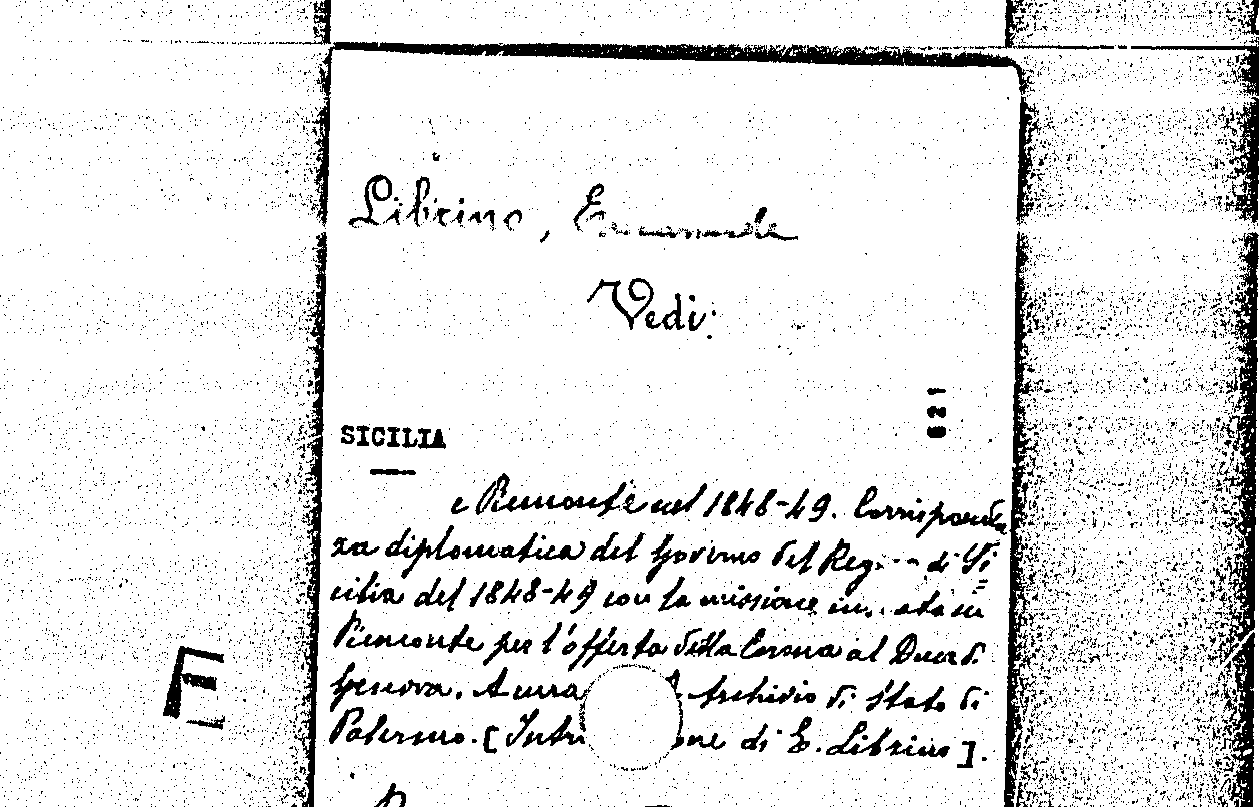 Librino, Emanuele
Vedi:
821
SICILIA
e Piemonte nel 1848-49. Corrisponden
za diplomatica del Governo del Reg di Si=
cilia del 1848-49 con la missione in ata in
Piemonte per l'offerta della Corona al Duca di
Genova. A cura Archivio di Stato di
Palermo. [Intr one di E. Librino].
E